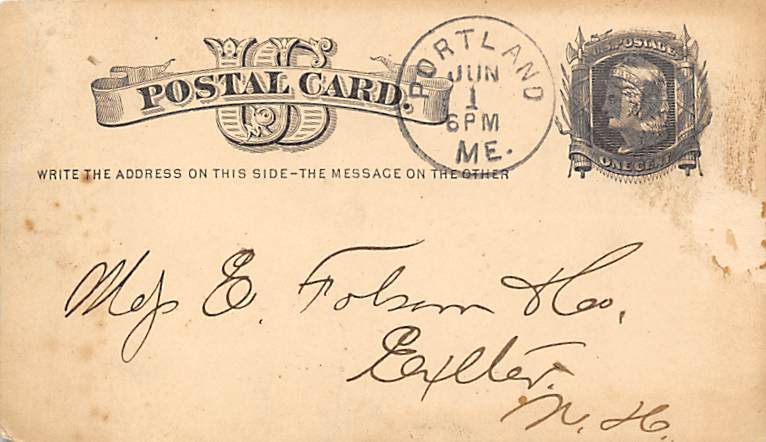 US
POSTAL CARD.
WRITE THE ADDRESS ON THIS SIDE-THE MESSAGE ON THE OTHER
PORTLAND
JUN
1
6PM
ME.
U.S. POSTAGE
ONE CENT
Mess E. Folsom & Co,
Exeter.
N. H.